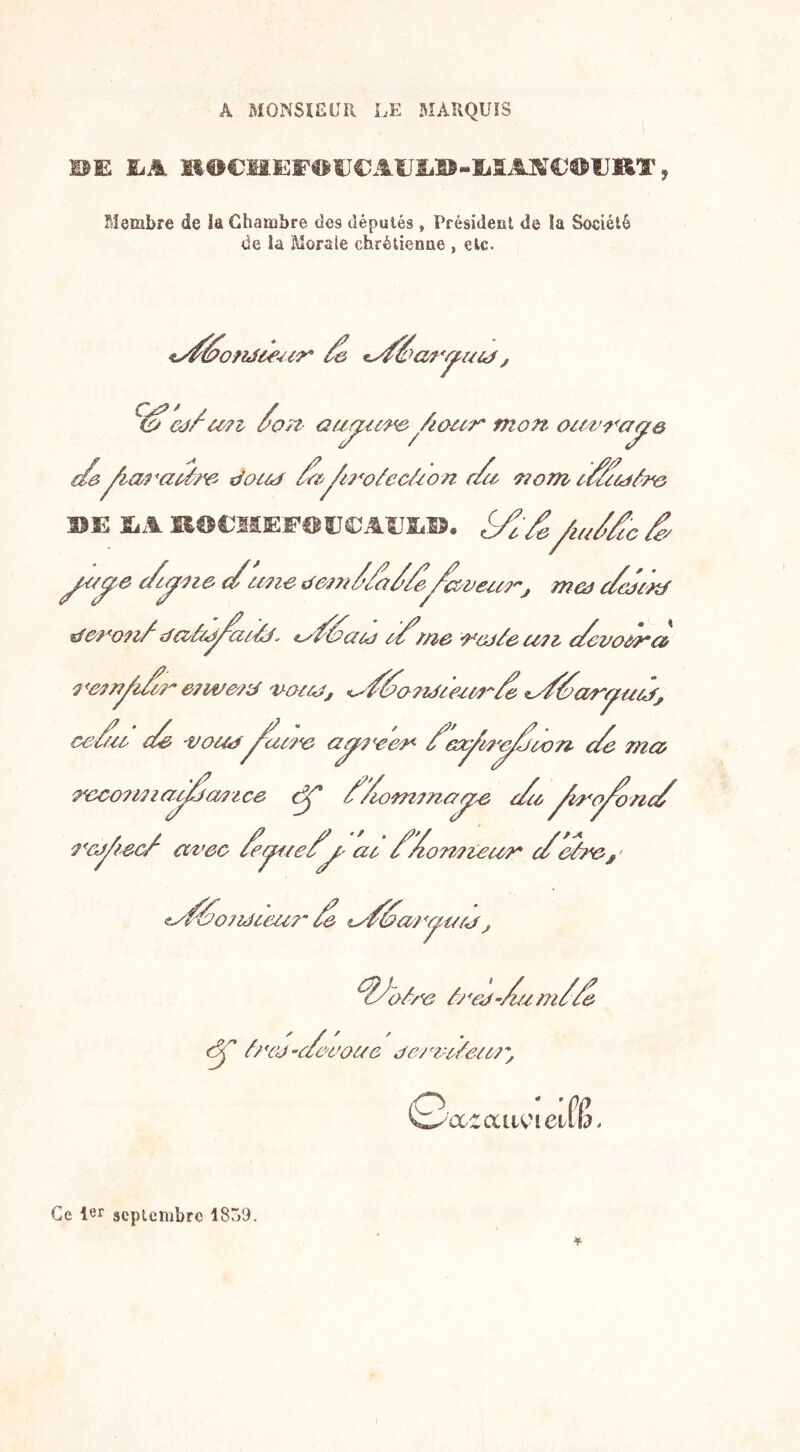 A MONSIEUR LE MARQUIS
DE LA ROCHEFOUCAULD-LIANCOURT,
Membre de la Chambre des députés, Président de la Société
de la Morale chrétienne, etc.
Monsieur le Marquis,
C'est un bon augure pour mon ouvrage
de paraître sous la protection du nom illustre
DE LA ROCHEFOUCAULD. Si le public le
juge digne d'une semblable faveur, mes désirs
seront satisfaits. Mais il me reste un devoir à
remplir envers vous, Monsieur le Marquis,
celui de vous faire agréer l'expression de ma
reconnaissance & l'hommage du profond
respect avec lequel j'ai l'honneur d'être,
Monsieur le Marquis,
Votre très-humble
& très-dévoué serviteur,
Cazauvieilh.
Ce 1er septembre 1839.
*